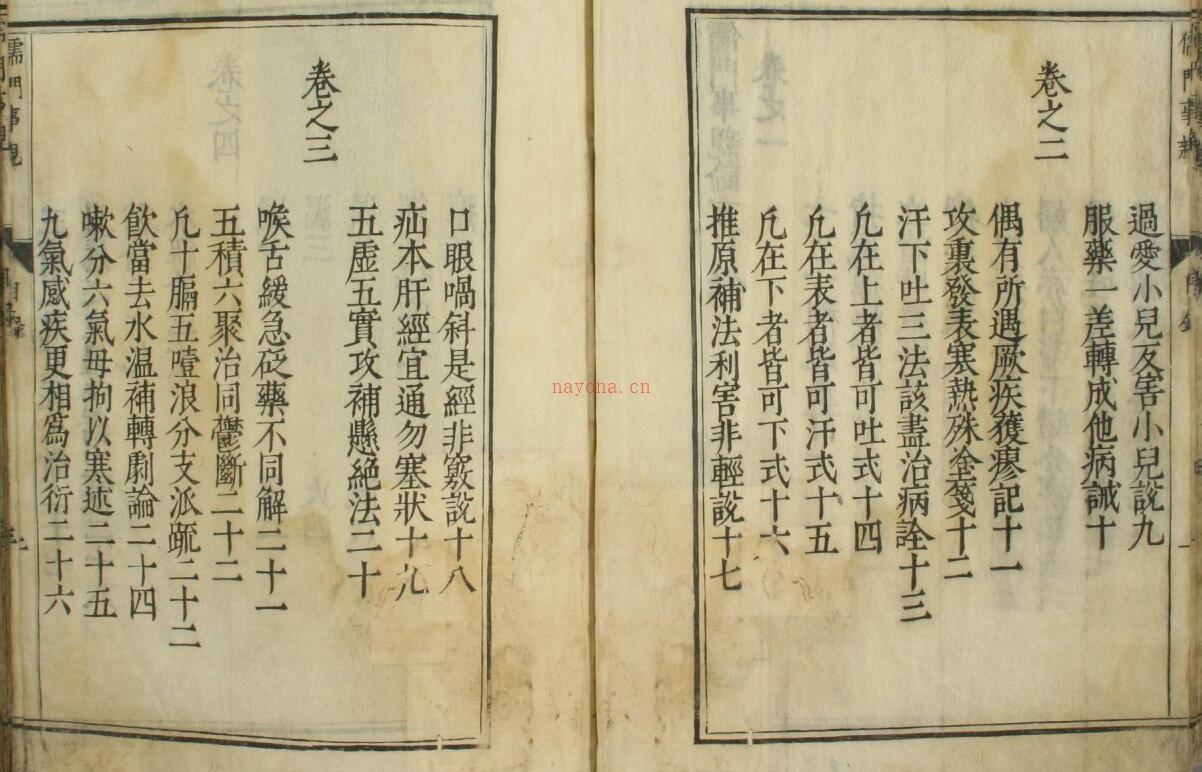 儒門事親
過愛小兒反害小兒說九
服藥一差轉成他病誡十
卷之二
偶有所遇厥疾獲瘳記十一
攻裏發表寒熱殊塗箋十二
汗下吐三法該盡治病詮十三
凢在上者皆可吐式十四
凢在表者皆可汗式十五
凢在下者皆可下式十六
推原補法利害非輕說十七
口眼喎斜是經非竅說十八
疝本肝經宜通勿塞狀十九
五虛五實攻補懸絕法二十
卷之三
喉舌緩急砭藥不同解二十一
五積六聚治同鬱斷二十二
凢十膈五噎浪分支派疏二十二
飲當去水溫補轉劇論二十四
嗽分六氣毋拘以寒述二十五
九氣感疾更相爲治衍二十六
儒門事親
nayona.cn